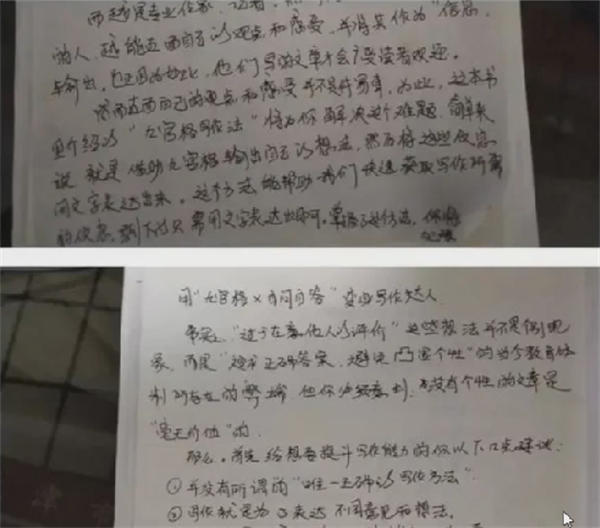 而越是专业作家、记者,
的人,越能直面自己的观点和感受,并将其作为“信息”
与输出,也正因为如此,他们写的文章才会广受读者欢迎。
然而直面自己的观点和感受并不是件易事,为此,这本书
里介绍的“九宫格写作法”将为你解决这个难题,简单来
说 就是借助九宫格输出自己的想法,然后将这些信息
用文字表达出来。这个方法能帮助我们快速获取写作所需
的信息,剩下的只需用文字表达出即可。掌握了这个方法,你将
用“九宫格×自问自答”变身写作达人
事实上“过于在意他人的评价”这些想法并不是个别现
象,而是“追求正确答案,避免凸显个性”的当今教育体
制所存在的弊端 但你必须意识到,没有个性的文章是
“毫无价值”的.
那么,首先给想要提升写作能力的你以下几点建议:
①并没有所谓的“唯一正确的写作方法”
②写作就是为了表达不同意见和想法。